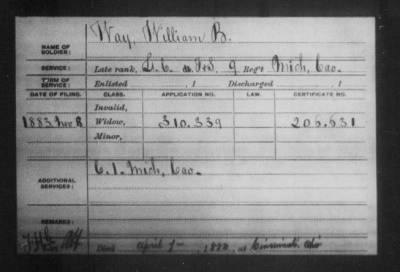 Way, William B.
NAME OF SOLDIER:
SERVICE: Late rank, L. C. 9 Reg't Mich. Cav.
TERM OF SERVICE: Enlisted , 1 Discharged 1
DATE OF FILING. CLASS. APPLICATION NO. LAW. CERTIFICATE NO.
Invalid,
1883 Widow, 310.339 206.631
Minor,
C. 1. Mich. Cav.
ADDITIONAL SERVICES:
REMARKS:
Died April 188 at Cincinnati Ohio